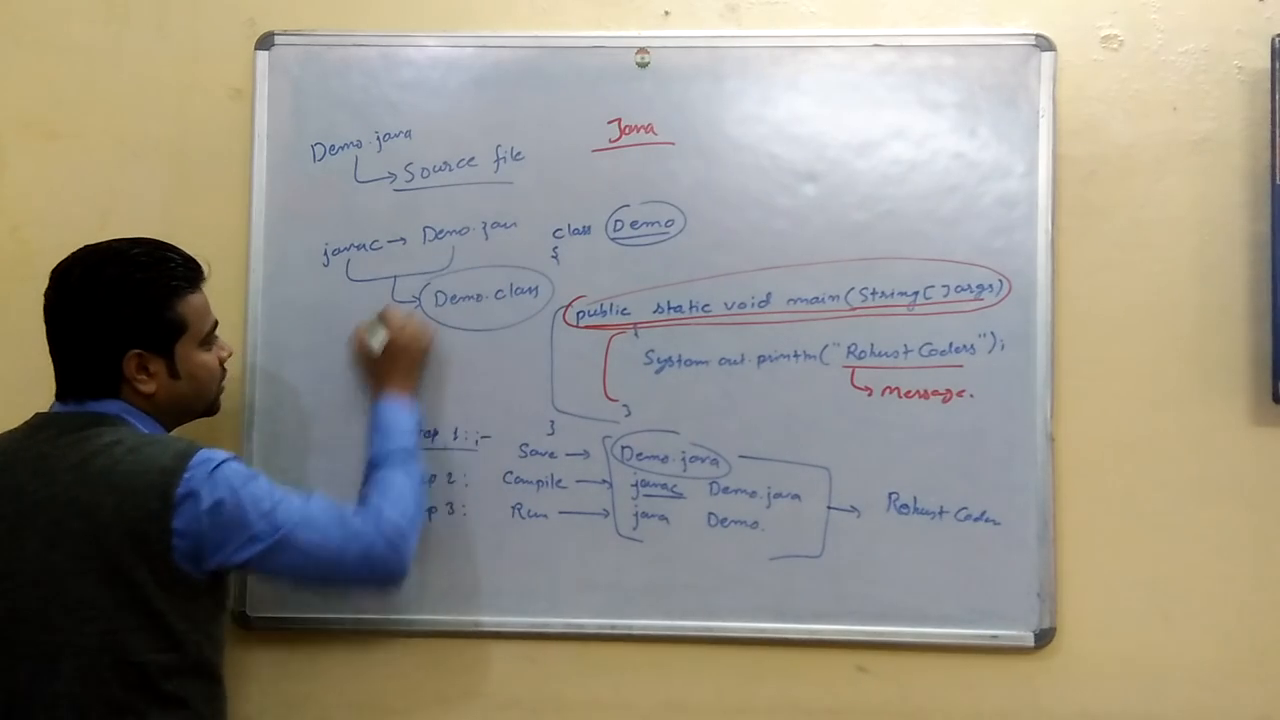 Java
Demo.java
Source file
javac → Demo.jav
Demo.class
class Demo
{
public static void main(String[]args)
{
System.out.println("Robust Coders");
Message.
}
}
ep 1:;-
Save → Demo.java
p 2: Compile → javac Demo.java
p 3: Run → java Demo.
→ Robust Coder